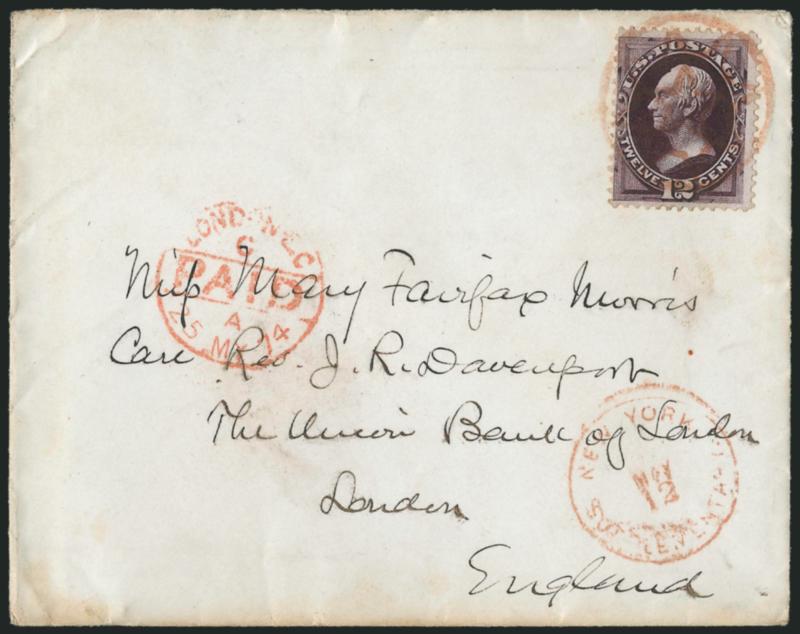 U.S. POSTAGE
TWELVE 12 CENTS
LONDON E.C
6
PAID
A
25 MY 74
Miss Mary Fairfax Morris
Care Rev. J. R. Davenport
The Union Bank of London
London
England
NEW YORK